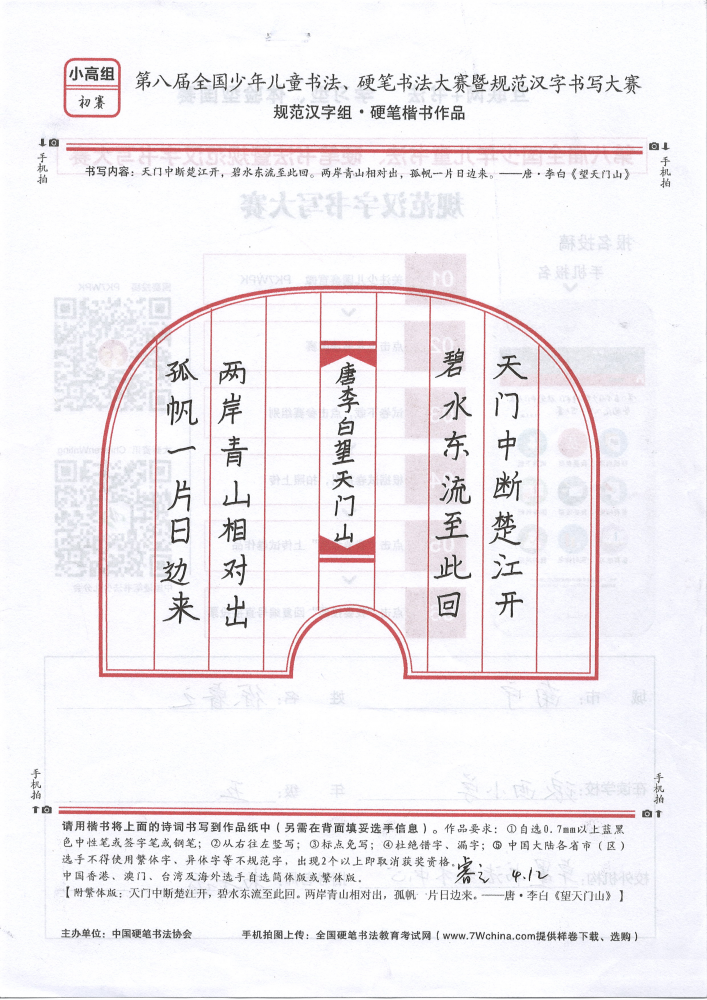 小高组
初赛
第八届全国少年儿童书法、硬笔书法大赛暨规范汉字书写大赛
规范汉字组·硬笔楷书作品
手机拍
手机拍
书写内容：天门中断楚江开，碧水东流至此回。两岸青山相对出，孤帆一片日边来。——唐·李白《望天门山》
天门中断楚江开
碧水东流至此回
唐李白望天门山
两岸青山相对出
孤帆一片日边来
手机拍
手机拍
请用楷书将上面的诗词书写到作品纸中（另需在背面填妥选手信息）。作品要求：①自选0.7mm以上蓝黑
色中性笔或签字笔或钢笔；②从右往左竖写；③标点免写；④杜绝错字、漏字；⑤ 中国大陆各省市（区）
选手不得使用繁体字、异体字等不规范字，出现2个以上即取消获奖资格。
中国香港、澳门、台湾及海外选手自选简体版或繁体版。
睿之 4.12
【附繁体版：天门中断楚江开，碧水东流至此回。两岸青山相对出，孤帆一片日边来。——唐·李白《望天门山》】
主办单位：中国硬笔书法协会
手机拍图上传：全国硬笔书法教育考试网（www.7Wchina.com提供样卷下载、选购）